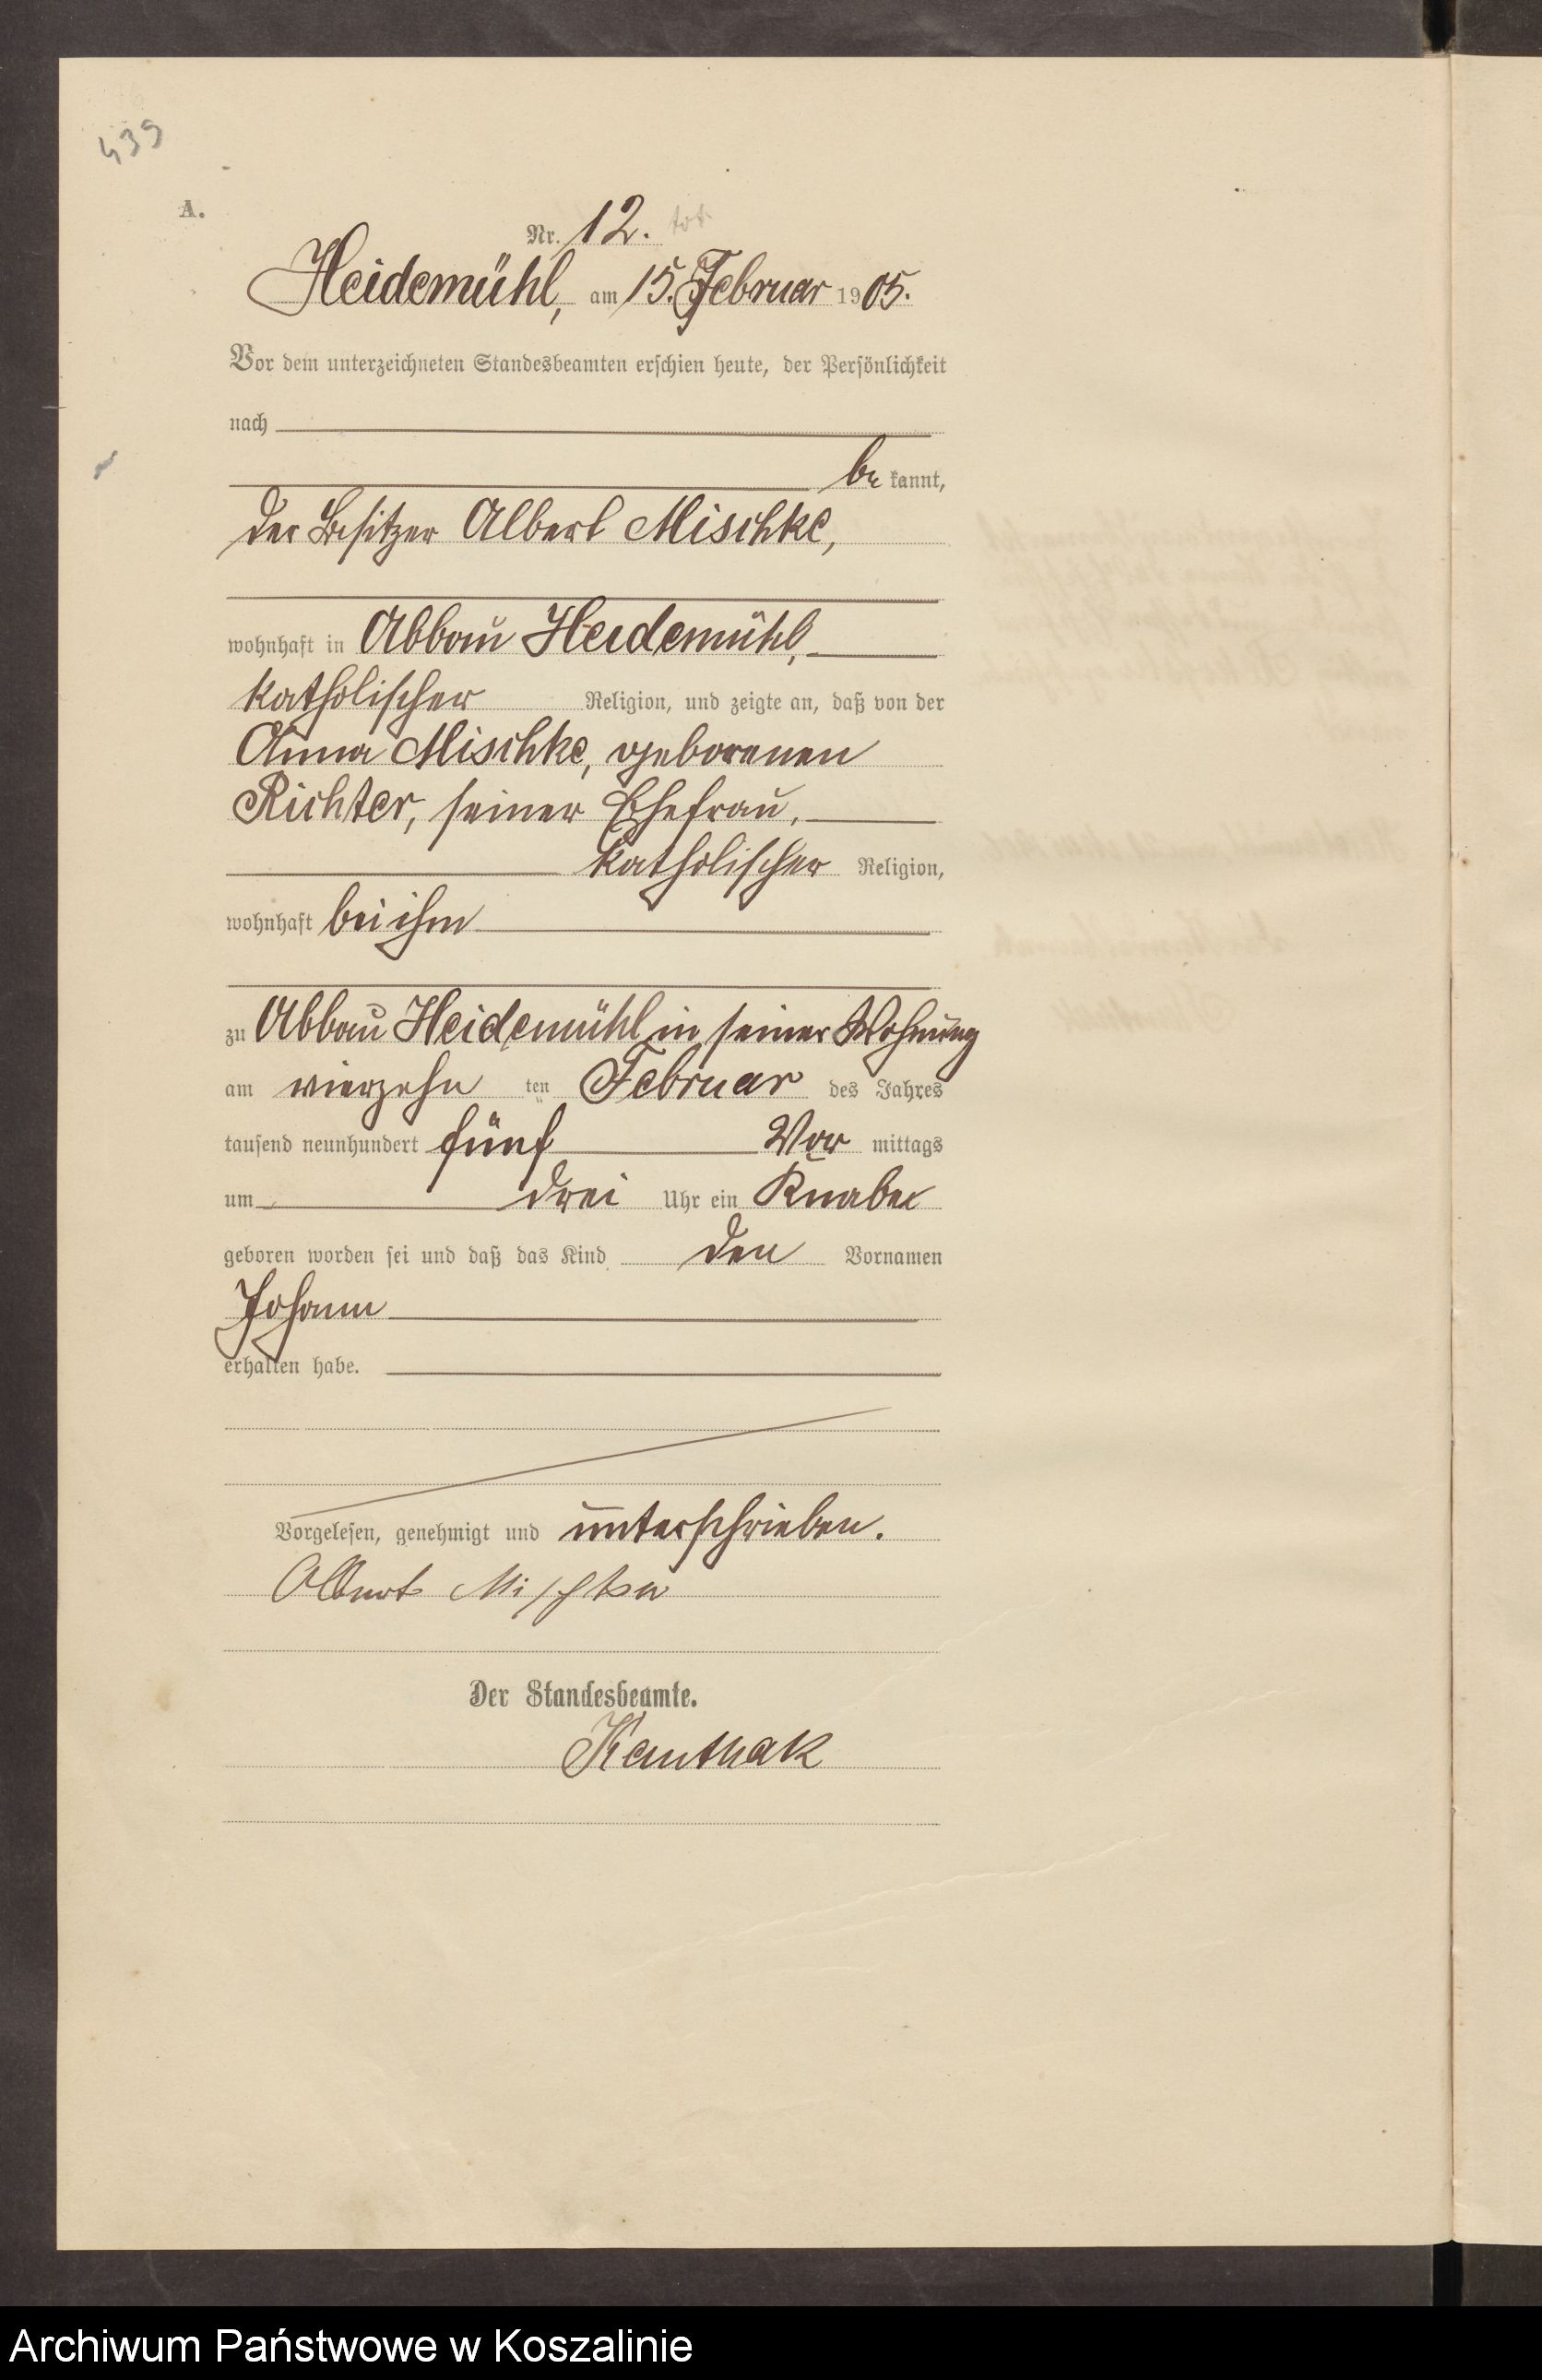 439
A.
Nr. 12. tot.
Heidemühl, am 15. Februar 1905.
Vor dem unterzeichneten Standesbeamten erschien heute, der Persönlichkeit
nach
be kannt,
der Besitzer Albert Mischke,
wohnhaft in Abbau Heidemühl,
katholischer Religion, und zeigte an, daß von der
Anna Mischke, geborenen
Richter, seiner Ehefrau,
katholischer Religion,
wohnhaft bei ihm
zu Abbau Heidemühl in seiner Wohnung
am vierzehn ten Februar des Jahres
tausend neunhundert fünf Vor mittags
um drei Uhr ein Knabe
geboren worden sei und daß das Kind den Vornamen
Johann
erhalten habe.
Vorgelesen, genehmigt und unterschrieben.
Albert Mischke
Der Standesbeamte.
Kanthak
Archiwum Państwowe w Koszalinie